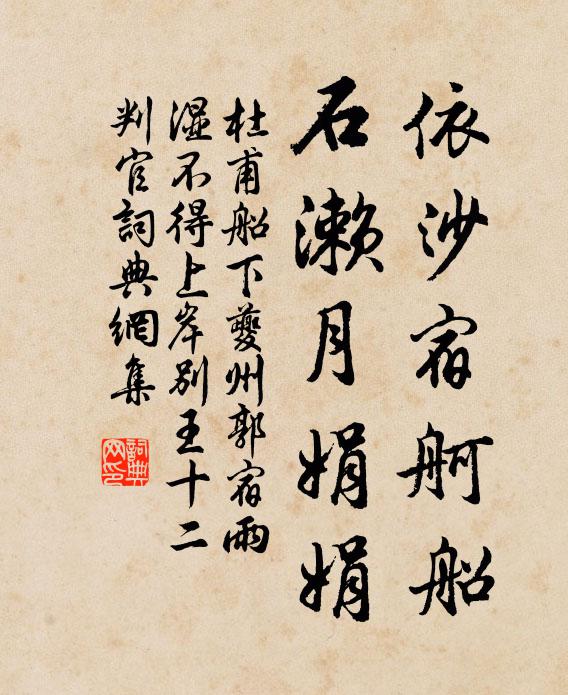 依沙宿舸船
石濑月娟娟
杜甫船下夔州郭宿雨
湿不得上岸别王十二
判官詞典網集
詞典網印